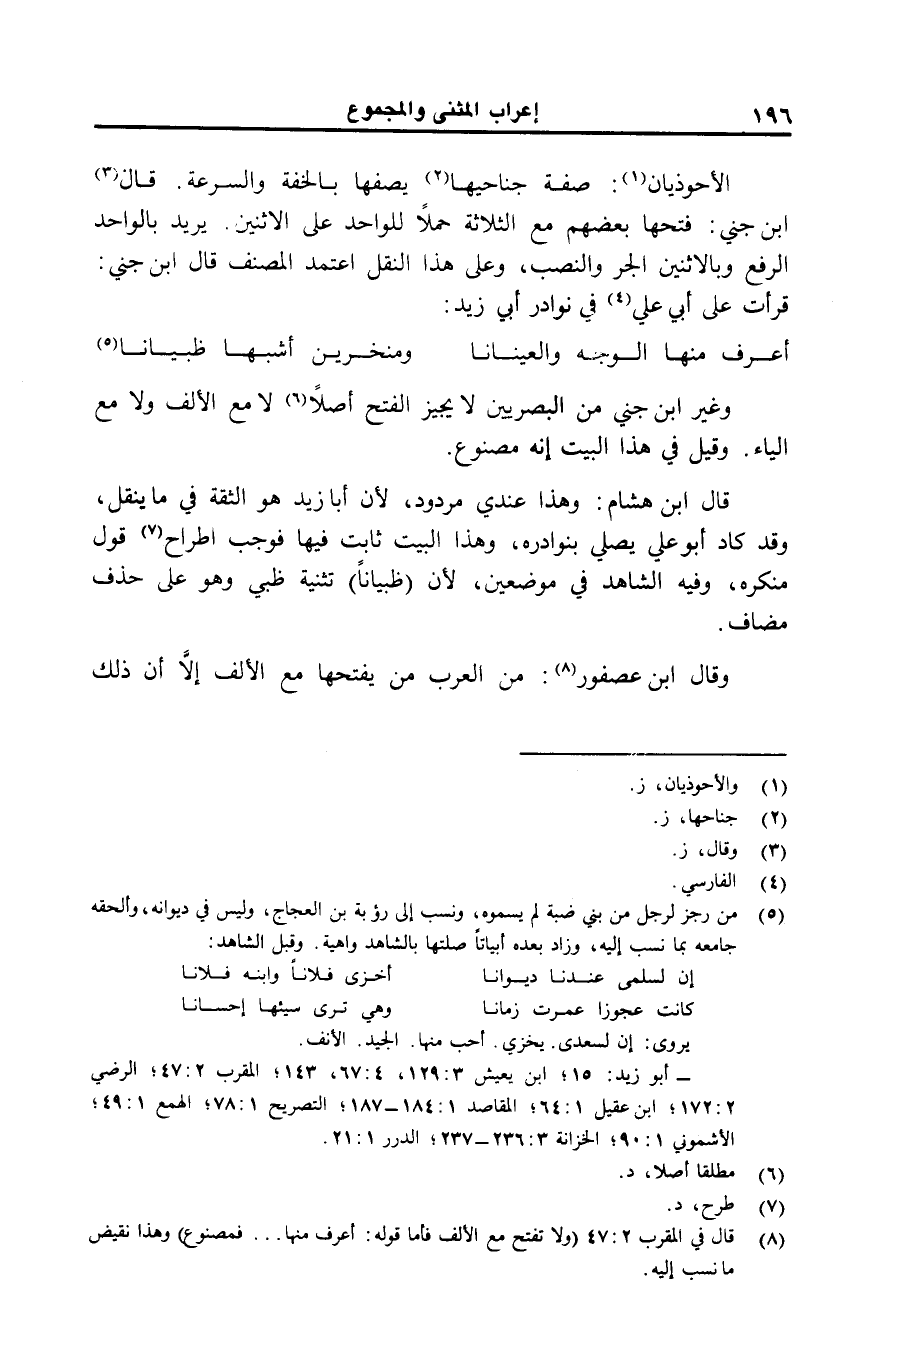 ١٩٦ إعراب المثنى والمجموع
الأحوذيان(١): صفة جناحيها(٢) يصفها بالخفة والسرعة. قال(٣)
ابن جني: فتحها بعضهم مع الثلاثة حملاً للواحد على الاثنين. يريد بالواحد
الرفع وبالاثنين الجر والنصب، وعلى هذا النقل اعتمد المصنف قال ابن جني:
قرأت على أبي علي(٤) في نوادر أبي زيد:
أعرف منها الوجه والعينانا ومنخرين أشبها ظبيانا(٥)
وغير ابن جني من البصريين لا يجيز الفتح أصلاً(٦) لا مع الألف ولا مع
الياء. وقيل في هذا البيت إنه مصنوع.
قال ابن هشام: وهذا عندي مردود، لأن أبا زيد هو الثقة في ما ينقل،
وقد كاد أبو علي يصلي بنوادره، وهذا البيت ثابت فيها فوجب اطراح(٧) قول
منكره، وفيه الشاهد في موضعين، لأن (ظبياناً) تثنية ظبي وهو على حذف
مضاف.
وقال ابن عصفور(٨): من العرب من يفتحها مع الألف إلاَّ أن ذلك
(١) والأحوذيان، ز.
(٢) جناحها، ز.
(٣) وقال، ز.
(٤) الفارسي.
(٥) من رجز لرجل من بني ضبة لم يسموه، ونسب إلى رؤبة بن العجاج، وليس في ديوانه، وألحقه
جامعه بما نسب إليه، وزاد بعده أبياتاً صلتها بالشاهد واهية. وقبل الشاهد:
إن لسلمى عندنا ديوانا أخزى فلاناً وابنه فلانا
كانت عجوزا عمرت زمانا وهي ترى سيئها إحسانا
يروى: إن لسعدى. يخزي. أحب منها. الجيد. الأنف.
ــ أبو زيد: ١٥؛ ابن يعيش ٣: ١٢٩، ٤: ٦٧، ١٤٣؛ المقرب ٢: ٤٧؛ الرضي
٢: ١٧٢؛ ابن عقيل ١: ٦٤؛ المقاصد ١: ١٨٤ــ١٨٧؛ التصريح ١: ٧٨؛ الهمع ١: ٤٩؛
الأشموني ١: ٩٠؛ الخزانة ٣: ٢٣٦ــ٢٣٧؛ الدرر ١: ٢١.
(٦) مطلقا أصلا، د.
(٧) طرح، د.
(٨) قال في المقرب ٢: ٤٧ (ولا تفتح مع الألف فأما قوله: أعرف منها... فمصنوع) وهذا نقيض
ما نسب إليه.